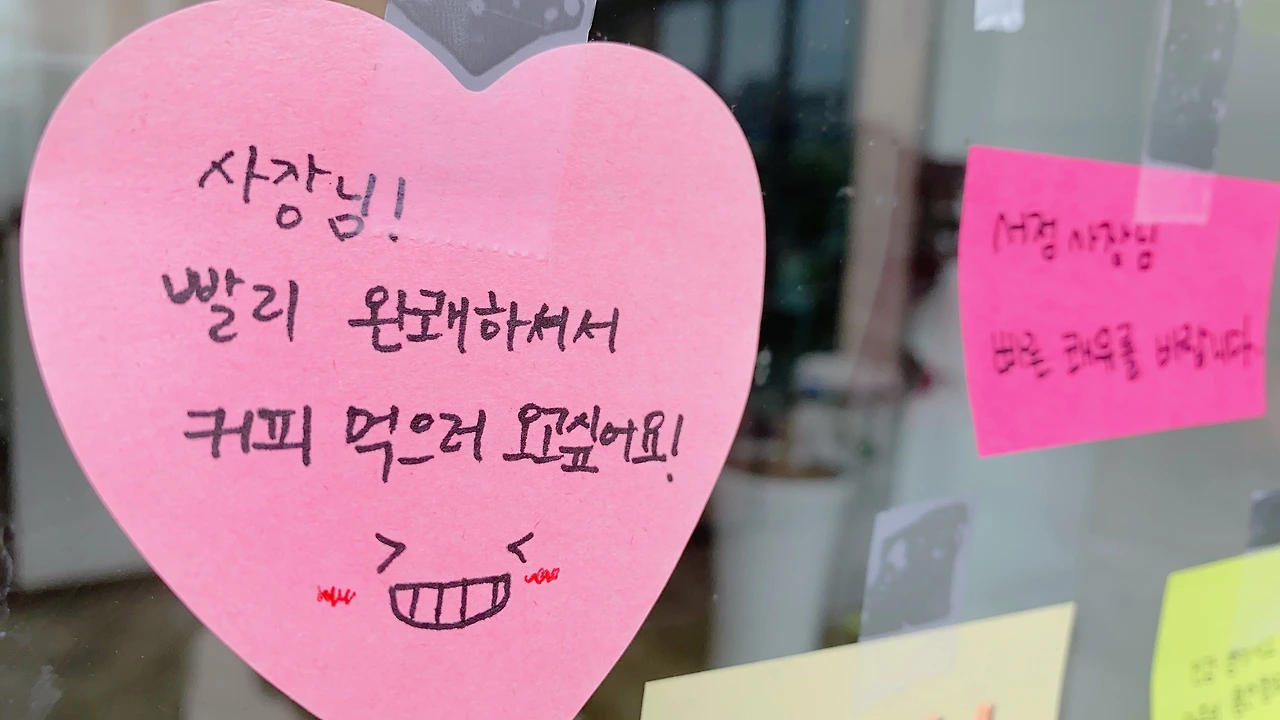 사장님!
빨리 완쾌하셔서
커피 먹으러 오고싶어요!
서정 사장님
빠른 쾌유를 바랍니다